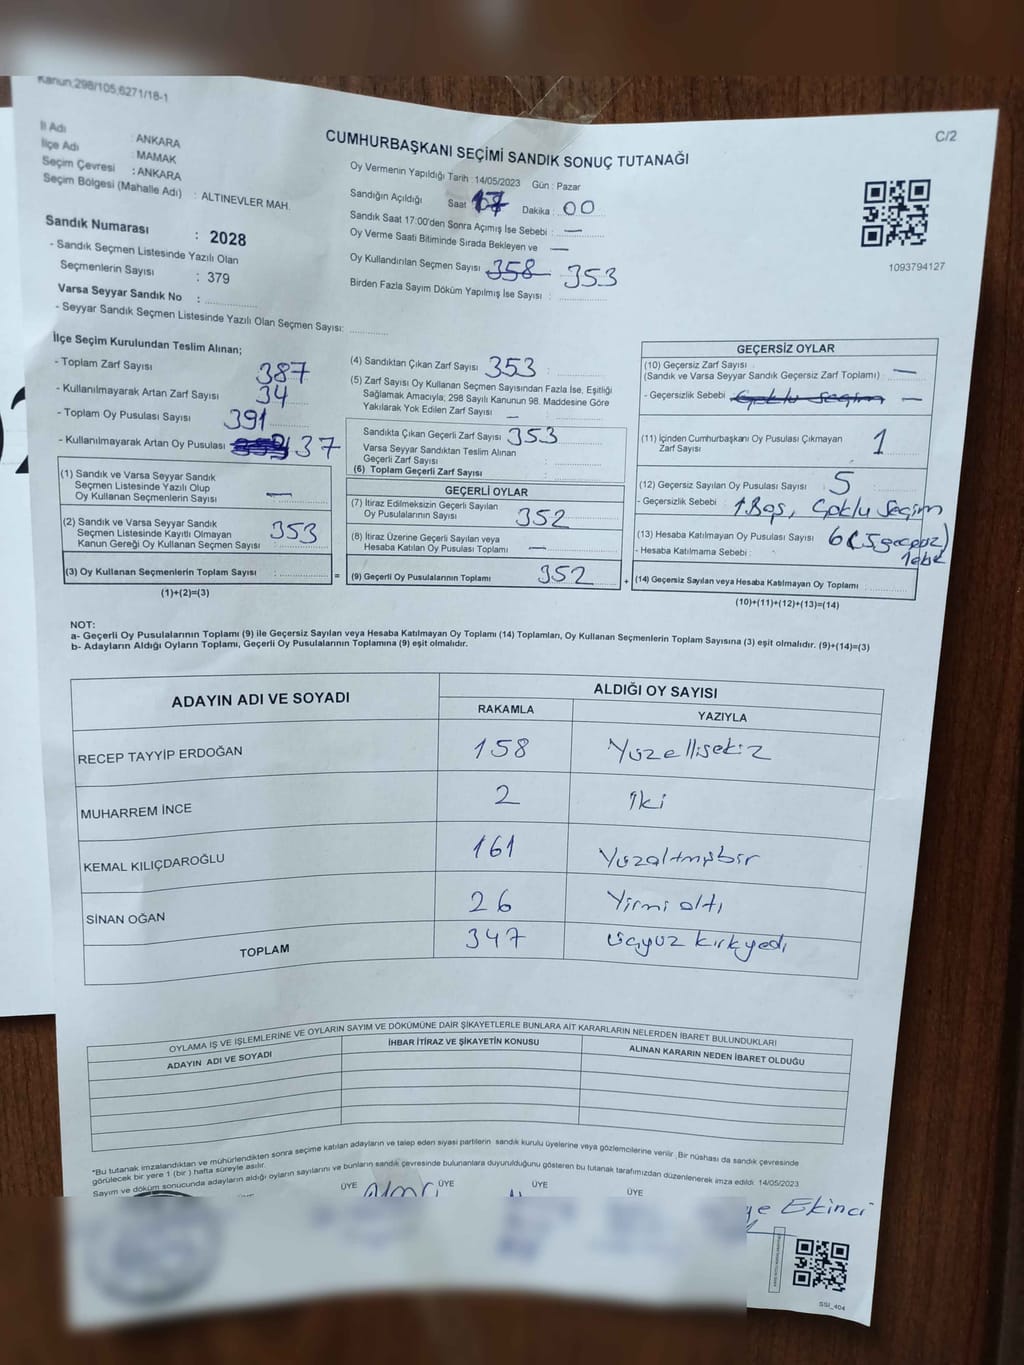 Kanun;298/105;6271/18-1
C/2
İl Adı : ANKARA
İlçe Adı : MAMAK
Seçim Çevresi : ANKARA
Seçim Bölgesi (Mahalle Adı) : ALTINEVLER MAH.
Sandık Numarası : 2028
- Sandık Seçmen Listesinde Yazılı Olan
Seçmenlerin Sayısı : 379
Varsa Seyyar Sandık No :
- Seyyar Sandık Seçmen Listesinde Yazılı Olan Seçmen Sayısı:
CUMHURBAŞKANI SEÇİMİ SANDIK SONUÇ TUTANAĞI
Oy Vermenin Yapıldığı Tarih : 14/05/2023 Gün : Pazar
Sandığın Açıldığı Saat 17 Dakika : 00
Sandık Saat 17:00'den Sonra Açımış İse Sebebi : —
Oy Verme Saati Bitiminde Sırada Bekleyen ve —
Oy Kullandırılan Seçmen Sayısı 358 353
Birden Fazla Sayım Döküm Yapılmış İse Sayısı :
1093794127
İlçe Seçim Kurulundan Teslim Alınan;
- Toplam Zarf Sayısı 387
- Kullanılmayarak Artan Zarf Sayısı 34
- Toplam Oy Pusulası Sayısı 391
- Kullanılmayarak Artan Oy Pusulası 37
(1) Sandık ve Varsa Seyyar Sandık
Seçmen Listesinde Yazılı Olup
Oy Kullanan Seçmenlerin Sayısı : —
(2) Sandık ve Varsa Seyyar Sandık
Seçmen Listesinde Kayıtlı Olmayan
Kanun Gereği Oy Kullanan Seçmen Sayısı : 353
(3) Oy Kullanan Seçmenlerin Toplam Sayısı : =
(1)+(2)=(3)
(4) Sandıktan Çıkan Zarf Sayısı : 353
(5) Zarf Sayısı Oy Kullanan Seçmen Sayısından Fazla İse, Eşitliği
Sağlamak Amacıyla; 298 Sayılı Kanunun 98. Maddesine Göre
Yakılarak Yok Edilen Zarf Sayısı : —
Sandıkta Çıkan Geçerli Zarf Sayısı : 353
Varsa Seyyar Sandıktan Teslim Alınan
Geçerli Zarf Sayısı :
(6) Toplam Geçerli Zarf Sayısı :
GEÇERLİ OYLAR
(7) İtiraz Edilmeksizin Geçerli Sayılan
Oy Pusulalarının Sayısı : 352
(8) İtiraz Üzerine Geçerli Sayılan veya
Hesaba Katılan Oy Pusulası Toplamı : —
(9) Geçerli Oy Pusulalarının Toplamı 352 +
GEÇERSİZ OYLAR
(10) Geçersiz Zarf Sayısı :
(Sandık ve Varsa Seyyar Sandık Geçersiz Zarf Toplamı) : —
- Geçersizlik Sebebi : Çoklu Seçim —
(11) İçinden Cumhurbaşkanı Oy Pusulası Çıkmayan
Zarf Sayısı : 1
(12) Geçersiz Sayılan Oy Pusulası Sayısı : 5
- Geçersizlik Sebebi : 1 Boş, Çoklu Seçim
(13) Hesaba Katılmayan Oy Pusulası Sayısı 6 (5 geçersiz)
- Hesaba Katılmama Sebebi :
(14) Geçersiz Sayılan veya Hesaba Katılmayan Oy Toplamı :
(10)+(11)+(12)+(13)=(14)
NOT:
a- Geçerli Oy Pusulalarının Toplamı (9) ile Geçersiz Sayılan veya Hesaba Katılmayan Oy Toplamı (14) Toplamları, Oy Kullanan Seçmenlerin Toplam Sayısına (3) eşit olmalıdır. (9)+(14)=(3)
b- Adayların Aldığı Oyların Toplamı, Geçerli Oy Pusulalarının Toplamına (9) eşit olmalıdır.
ADAYIN ADI VE SOYADI ALDIĞI OY SAYISI
RAKAMLA YAZIYLA
RECEP TAYYİP ERDOĞAN 158 Yüzellisekiz
MUHARREM İNCE 2 iki
KEMAL KILIÇDAROĞLU 161 Yüzaltmışbir
SİNAN OĞAN 26 Yirmi altı
TOPLAM 347 üçyüz kırkyedi
OYLAMA İŞ VE İŞLEMLERİNE VE OYLARIN SAYIM VE DÖKÜMÜNE DAİR ŞİKAYETLERLE BUNLARA AİT KARARLARIN NELERDEN İBARET BULUNDUKLARI
ADAYIN ADI VE SOYADI İHBAR İTİRAZ VE ŞİKAYETİN KONUSU ALINAN KARARIN NEDEN İBARET OLDUĞU
*Bu tutanak imzalandıktan ve mühürlendikten sonra seçime katılan adayların ve talep eden siyasi partilerin sandık kurulu üyelerine veya gözlemcilerine verilir. Bir nüshası da sandık çevresinde
görülecek bir yere 1 (bir) hafta süreyle asılır.
Sayım ve döküm sonucunda adayların aldığı oyların sayılarını ve bunların sandık çevresinde bulunanlara duyurulduğunu gösteren bu tutanak tarafımızdan düzenlenerek imza edildi. 14/05/2023
ÜYE ÜYE ÜYE ÜYE
Ekinci
SSI_404